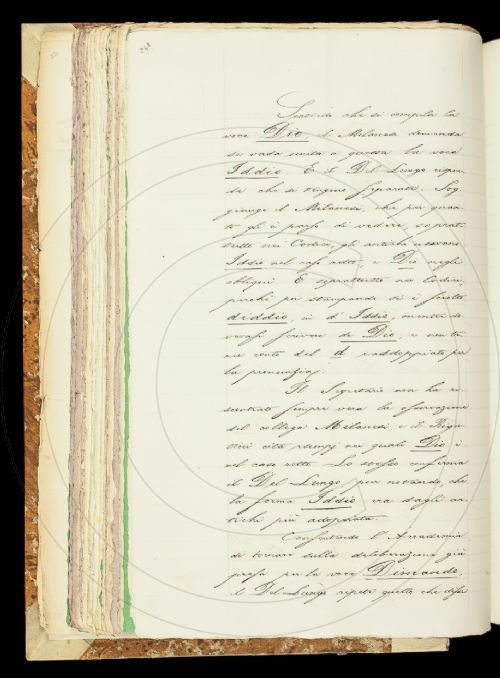 241
Sentendo che si compila la
voce Dio, il Milanesi domanda
se vada unita a questa la voce
Iddio. E il Del Lungo rispon-
de che si tengono separate. Sog-
giunge il Milanesi, che per quan-
to gli è parso di vedere, soprat-
tutto nei Codici, gli antichi usavano
Iddio nel caso retto, e Dio negli
obliqui. E soprattutto nei Codici,
perchè poi stampando si è sciolto
diddio, in d'Iddio, mentre do-
vevasi scrivere di Dio, e non te-
ner conto del d raddoppiato per
la pronunzia.
Il Segretario non ha ri-
scontrato sempre vera la osservazione
del collega Milanesi, e il Rigu-
tini cita esempj nei quali Dio è
nel caso retto. Lo stesso conferma
il Del Lungo, pur notando, che
la forma Iddio era dagli an-
tichi più adoperata.
Consentendo l'Accademia
di tornare sulla deliberazione già
presa per la voce Dimando,
il Del Lungo ripete quello che disse